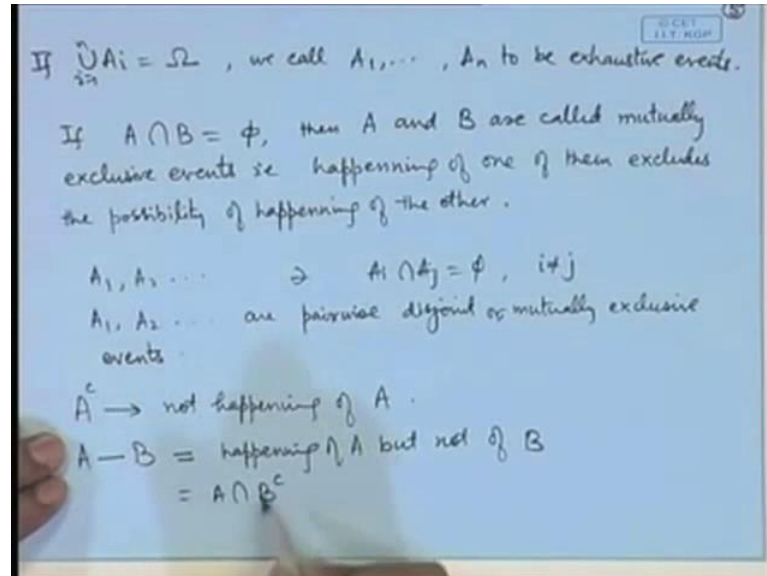 © CET
I.I.T. KGP
If ⋃ᵢ₌₁ⁿ Ai = Ω , we call A₁,⋯ , Aₙ to be exhaustive events.
If A ∩ B = ϕ, then A and B are called mutually
exclusive events ie happenning of one of them excludes
the possibility of happenning of the other .
A₁, A₂ ⋯ ∋ Ai ∩ Aj = ϕ , i≠j
A₁, A₂ ⋯ are pairwise disjoint or mutually exclusive
events
Aᶜ → not happening of A .
A — B = happening of A but not of B
= A ∩ Bᶜ